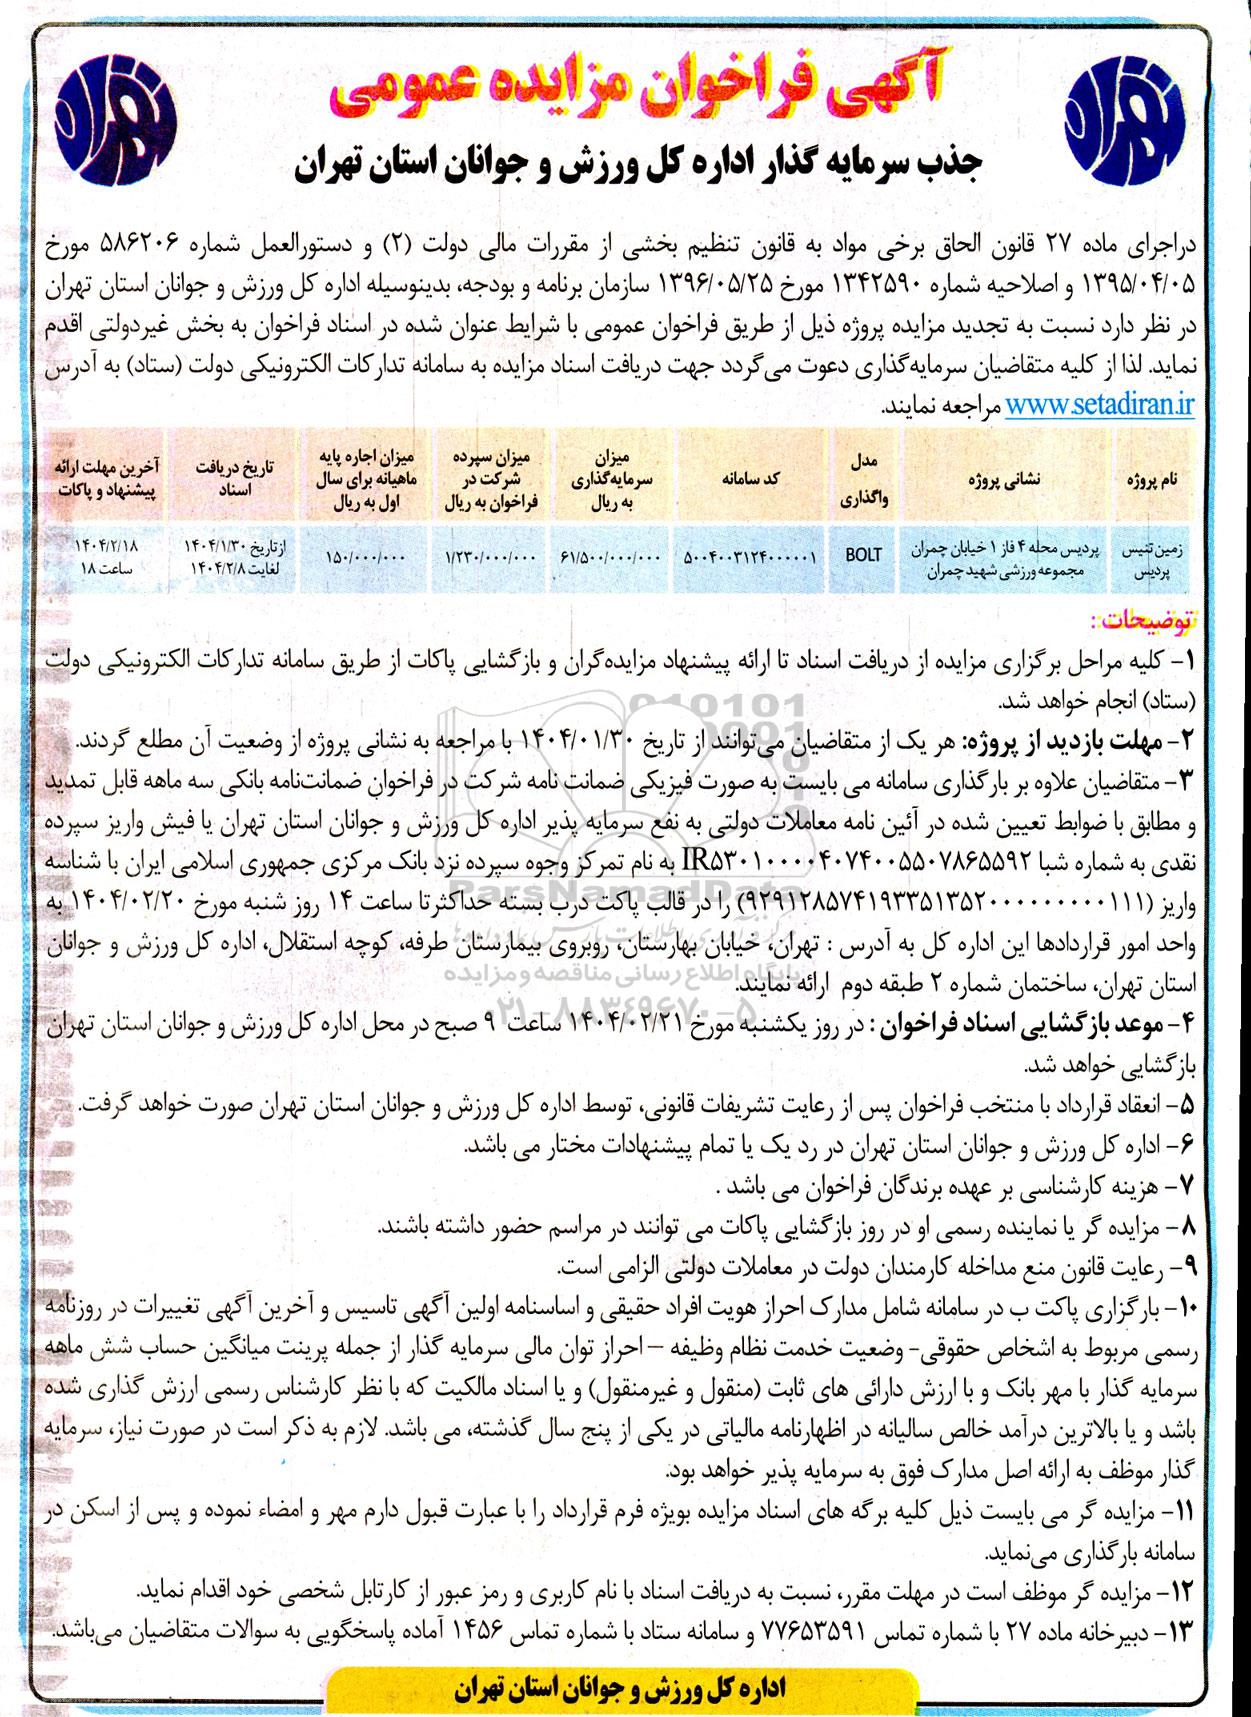 تهران
تهران
آگهی فراخوان مزایده عمومی
جذب سرمایه گذار اداره کل ورزش و جوانان استان تهران
دراجرای ماده ۲۷ قانون الحاق برخی مواد به قانون تنظیم بخشی از مقررات مالی دولت (۲) و دستورالعمل شماره ۵۸۶۲۰۶ مورخ
۱۳۹۵/۰۴/۰۵ و اصلاحیه شماره ۱۳۴۲۵۹۰ مورخ ۱۳۹۶/۰۵/۲۵ سازمان برنامه و بودجه، بدینوسیله اداره کل ورزش و جوانان استان تهران
در نظر دارد نسبت به تجدید مزایده پروژه ذیل از طریق فراخوان عمومی با شرایط عنوان شده در اسناد فراخوان به بخش غیردولتی اقدم
نماید. لذا از کلیه متقاضیان سرمایه‌گذاری دعوت می‌گردد جهت دریافت اسناد مزایده به سامانه تدارکات الکترونیکی دولت (ستاد) به آدرس
www.setadiran.ir مراجعه نمایند.
نام پروژه | نشانی پروژه | مدل واگذاری | کد سامانه | میزان سرمایه‌گذاری به ریال | میزان سپرده شرکت در فراخوان به ریال | میزان اجاره پایه ماهیانه برای سال اول به ریال | تاریخ دریافت اسناد | آخرین مهلت ارائه پیشنهاد و پاکات
زمین تنیس پردیس | پردیس محله ۴ فاز ۱ خیابان چمران مجموعه ورزشی شهید چمران | BOLT | ۵۰۰۴۰۰۳۱۲۴۰۰۰۰۰۱ | ۶۱/۵۰۰/۰۰۰/۰۰۰ | ۱/۲۳۰/۰۰۰/۰۰۰ | ۱۵۰/۰۰۰/۰۰۰ | ازتاریخ ۱۴۰۴/۱/۳۰ لغایت ۱۴۰۴/۲/۸ | ۱۴۰۴/۲/۱۸ ساعت ۱۸
توضیحات :
۱- کلیه مراحل برگزاری مزایده از دریافت اسناد تا ارائه پیشنهاد مزایده‌گران و بازگشایی پاکات از طریق سامانه تدارکات الکترونیکی دولت
(ستاد) انجام خواهد شد.
۲- مهلت بازدید از پروژه: هر یک از متقاضیان می‌توانند از تاریخ ۱۴۰۴/۰۱/۳۰ با مراجعه به نشانی پروژه از وضعیت آن مطلع گردند.
۳- متقاضیان علاوه بر بارگذاری سامانه می بایست به صورت فیزیکی ضمانت نامه شرکت در فراخوان ضمانت‌نامه بانکی سه ماهه قابل تمدید
و مطابق با ضوابط تعیین شده در آئین نامه معاملات دولتی به نفع سرمایه پذیر اداره کل ورزش و جوانان استان تهران یا فیش واریز سپرده
نقدی به شماره شبا IR۵۳۰۱۰۰۰۰۴۰۷۴۰۰۵۵۰۷۸۶۵۵۹۲ به نام تمرکز وجوه سپرده نزد بانک مرکزی جمهوری اسلامی ایران با شناسه
واریز (۹۲۹۱۲۸۵۷۴۱۹۳۳۵۱۳۵۲۰۰۰۰۰۰۰۰۰۰۱۱۱) را در قالب پاکت درب بسته حداکثرتا ساعت ۱۴ روز شنبه مورخ ۱۴۰۴/۰۲/۲۰ به
واحد امور قراردادها این اداره کل به آدرس : تهران، خیابان بهارستان، روبروی بیمارستان طرفه، کوچه استقلال، اداره کل ورزش و جوانان
استان تهران، ساختمان شماره ۲ طبقه دوم ارائه نمایند.
۴- موعد بازگشایی اسناد فراخوان : در روز یکشنبه مورخ ۱۴۰۴/۰۲/۲۱ ساعت ۹ صبح در محل اداره کل ورزش و جوانان استان تهران
بازگشایی خواهد شد.
۵- انعقاد قرارداد با منتخب فراخوان پس از رعایت تشریفات قانونی، توسط اداره کل ورزش و جوانان استان تهران صورت خواهد گرفت.
۶- اداره کل ورزش و جوانان استان تهران در رد یک یا تمام پیشنهادات مختار می باشد.
۷- هزینه کارشناسی بر عهده برندگان فراخوان می باشد .
۸- مزایده گر یا نماینده رسمی او در روز بازگشایی پاکات می توانند در مراسم حضور داشته باشند.
۹- رعایت قانون منع مداخله کارمندان دولت در معاملات دولتی الزامی است.
۱۰- بارگزاری پاکت ب در سامانه شامل مدارک احراز هویت افراد حقیقی و اساسنامه اولین آگهی تاسیس و آخرین آگهی تغییرات در روزنامه
رسمی مربوط به اشخاص حقوقی- وضعیت خدمت نظام وظیفه – احراز توان مالی سرمایه گذار از جمله پرینت میانگین حساب شش ماهه
سرمایه گذار با مهر بانک و با ارزش دارائی های ثابت (منقول و غیرمنقول) و یا اسناد مالکیت که با نظر کارشناس رسمی ارزش گذاری شده
باشد و یا بالاترین درآمد خالص سالیانه در اظهارنامه مالیاتی در یکی از پنج سال گذشته، می باشد. لازم به ذکر است در صورت نیاز، سرمایه
گذار موظف به ارائه اصل مدارک فوق به سرمایه پذیر خواهد بود.
۱۱- مزایده گر می بایست ذیل کلیه برگه های اسناد مزایده بویژه فرم قرارداد را با عبارت قبول دارم مهر و امضاء نموده و پس از اسکن در
سامانه بارگذاری می‌نماید.
۱۲- مزایده گر موظف است در مهلت مقرر، نسبت به دریافت اسناد با نام کاربری و رمز عبور از کارتابل شخصی خود اقدام نماید.
۱۳- دبیرخانه ماده ۲۷ با شماره تماس ۷۷۶۵۳۵۹۱ و سامانه ستاد با شماره تماس ۱۴۵۶ آماده پاسخگویی به سوالات متقاضیان می‌باشد.
اداره کل ورزش و جوانان استان تهران
ParsNamadData
پایگاه اطلاع رسانی مناقصه و مزایده
۰۲۱-۸۸۳۴۹۶۷۰-۵